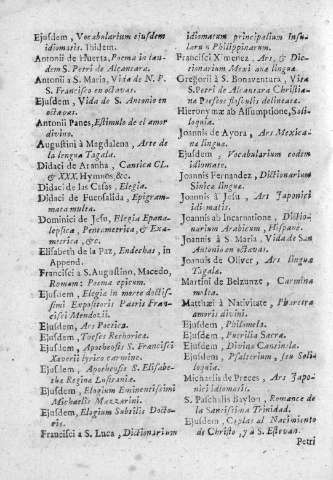 Ejusdem, Vocabularium ejusdem
idiomatis. Ibidem.
Antonii de Huerta, Poema in laudem
S. Petri de Alcantara.
Antonii a S. Maria, Vita de N. P.
S. Francisco en octavas.
Ejusdem, Vida de S. Antonio en
octavas.
Antonii Panes, Estimulo de el amor
divino.
Augustini à Magdalena, Arte de
la lengua Tagala.
Didaci de Aranha, Cantica CL.
& XXX. Hymnos, &c.
Didaci de las Casas, Elegia.
Didaci de Fuensalida, Epigrammata
multa.
Dominici de Jesu, Elegia Epanaleptica,
Pentametrica, & Exametrica,
&c.
Elisabeth de la Paz, Endechas, in
Append.
Francisci à S. Augustino, Macedo,
Poema epicum.
Ejusdem, Elegia in morte doctissimi
Expositoris Patris Francisci
Mendozii.
Ejusdem, Ars Poetica.
Ejusdem, Theses Rethorica.
Ejusdem, Apotheosis S. Francisci
Xaverii lyrico carmine.
Ejusdem, Apotheosis S. Elisabethæ
Regina Lusitania.
Ejusdem, Elogium Eminentissimi
Michaelis Mazzarini.
Ejusdem, Elogium Subtilis Doctoris.
Francisci a S. Luca, Dictionarium
idiomatum principalium Insularum
Philippinarum.
Francisci Ximenez, Ars, & Dictionarium
Mexicana lingua.
Gregorii à S. Bonaventura, Vita
S. Petri de Alcantara Christiana
Poeseos fasciculis delineata.
Hieronymæ ab Assumptione, Soliloquia.
Joannis de Ayora, Ars Mexicana
lingua.
Ejusdem, Vocabularium eodem
idiomate.
Joannis Fernandez, Dictionarium
Sinica lingua.
Joannis à Jesu, Ars Japonici
idiomatis.
Joannis ab Incarnatione, Dictionarium
Arabicum, Hispane.
Joannis à S. Maria, Vida de San
Antonio en octavas.
Joannis de Oliver, Ars lingua
Tagala.
Martini de Belzunze, Carmina
multa.
Matthæi à Nativitate, Pharetra
amoris divini.
Ejusdem, Philomela.
Ejusdem, Puerilia Sacra.
Ejusdem, Divina Cantinela.
Ejusdem, Psalterium, seu Soliloquia.
Michaelis de Preces, Ars Japonici
idiomatis.
S. Paschalis Baylon, Romance de
la Santissima Trinidad.
Ejusdem, Coplas al Nacimiento
de Christo, y à S. Estevan.
Petri